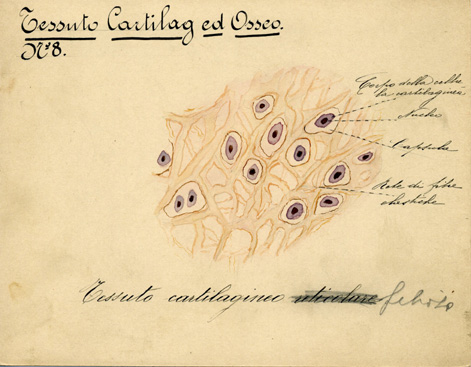 Tessuto Cartilag ed Osseo.
N°8.
Corpo della cellu
la cartilaginea
Nucleo
Capsula
Rete di fibre
elastiche
Tessuto cartilagineo reticolare fibroso